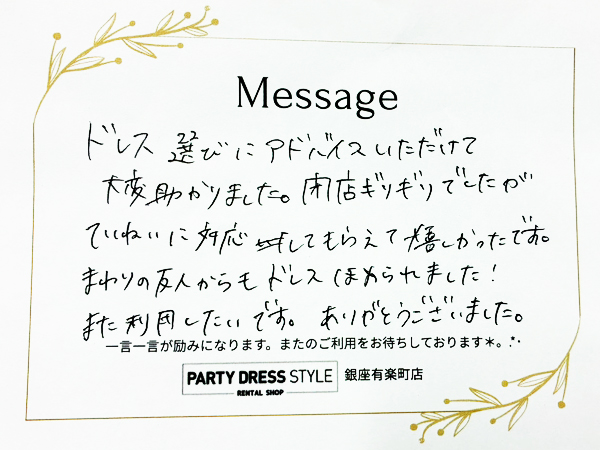 Message
ドレス選びにアドバイスいただけて
大変助かりました。閉店ギリギリでしたが
ていねいに対応してもらえて嬉しかったです。
まわりの友人からもドレスほめられました！
また利用したいです。ありがとうございました。
一言一言が励みになります。またのご利用をお待ちしております＊。.*･
PARTY DRESS STYLE 銀座有楽町店
RENTAL SHOP